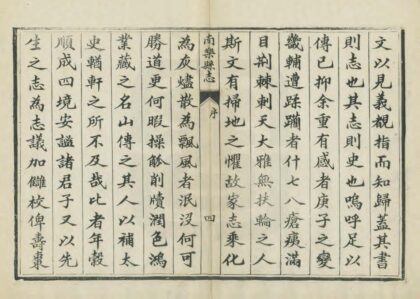 文以見義覩指而知歸蓋其書
則志也其志則史也嗚呼足以
傳已抑余重有感者庚子之變
畿輔遭蹂躪者什七八瘡痍滿
目荆棘刺天大雅無扶輪之人
斯文有掃地之懼故家志乘化
南樂縣志
序
四
為灰燼散為飄風者泯沒何可
勝道更何暇操觚削牘潤色鴻
業藏之名山傳之其人以補太
史輶軒之所不及哉比者年穀
順成四境安謐諸君子又以先
生之志為志議加讎校俾壽棗